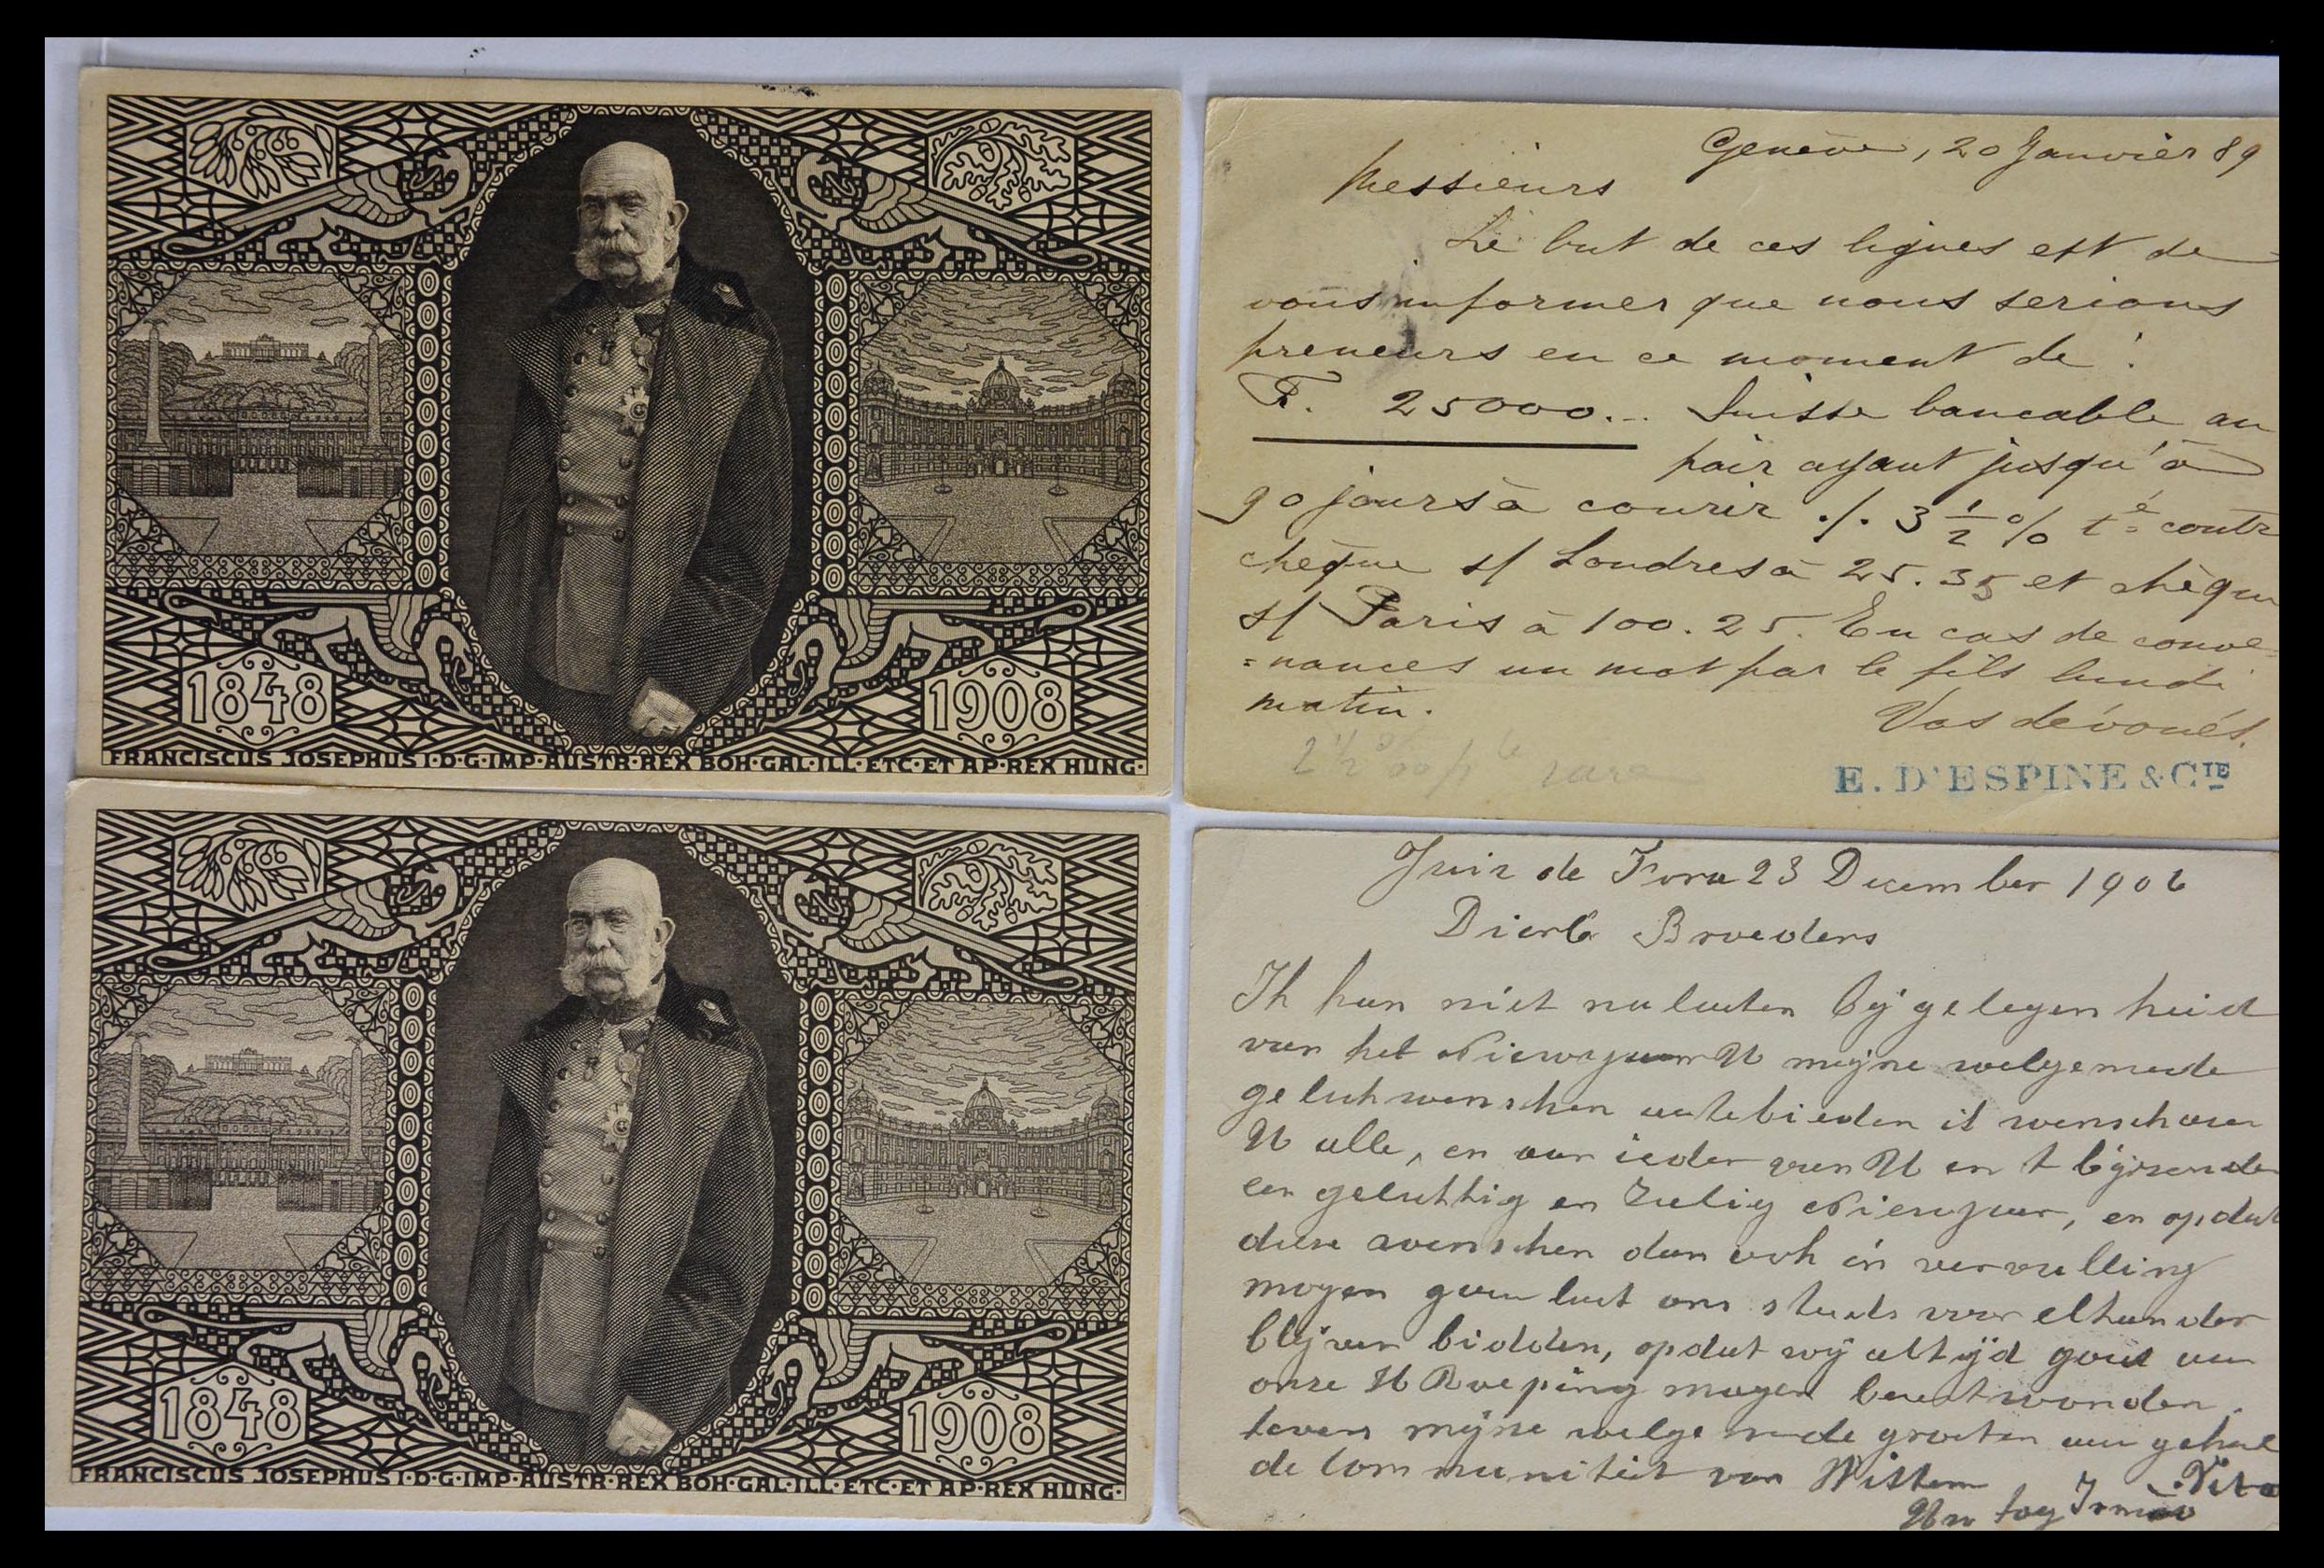 1848
1908
FRANCISCUS JOSEPHUS I·D·G·IMP·AUSTR·REX BOH·GAL·ILL·ETC·ET AP·REX HUNG·
1848
1908
FRANCISCUS JOSEPHUS I·D·G·IMP·AUSTR·REX BOH·GAL·ILL·ETC·ET AP·REX HUNG·
Genève, 20 Janvier 89
Messieurs
Le but de ces lignes est de
vous informer que nous serions
preneurs en ce moment de :
F. 25000... Suisse bancable au
pair ayant jusqu'à
90 jours à courir ./. 3 1/2 % contr
chèque s/ Londres à 25.35 et chèqu
s/ Paris à 100.25. En cas de conve=
=nances un mot par le fils lundi
matin.
Vos dévoués.
E. D'ESPINE & CIE
Juiz de Fora 23 December 1906
Dierb Broeders
Ik kan niet nalaten bij gelegenheid
van het Nieuwjaar U mijne welgemeede
gelukwenschen aantebieden ik wensch aan
U alle, en aan ieder van U en t bijzonder
een gelukkig en Zalig Nieuwjaar, en opdat
deze wenschen dan ook in vervulling
mogen gaan laat ons steeds voor elkander
blijven bidden, opdat wij altijd goed aan
onze H Roeping mogen beantwoorden.
tevens mijne welgemeede groeten aan geheel
de Communiteit van Wittem
Uw toeg